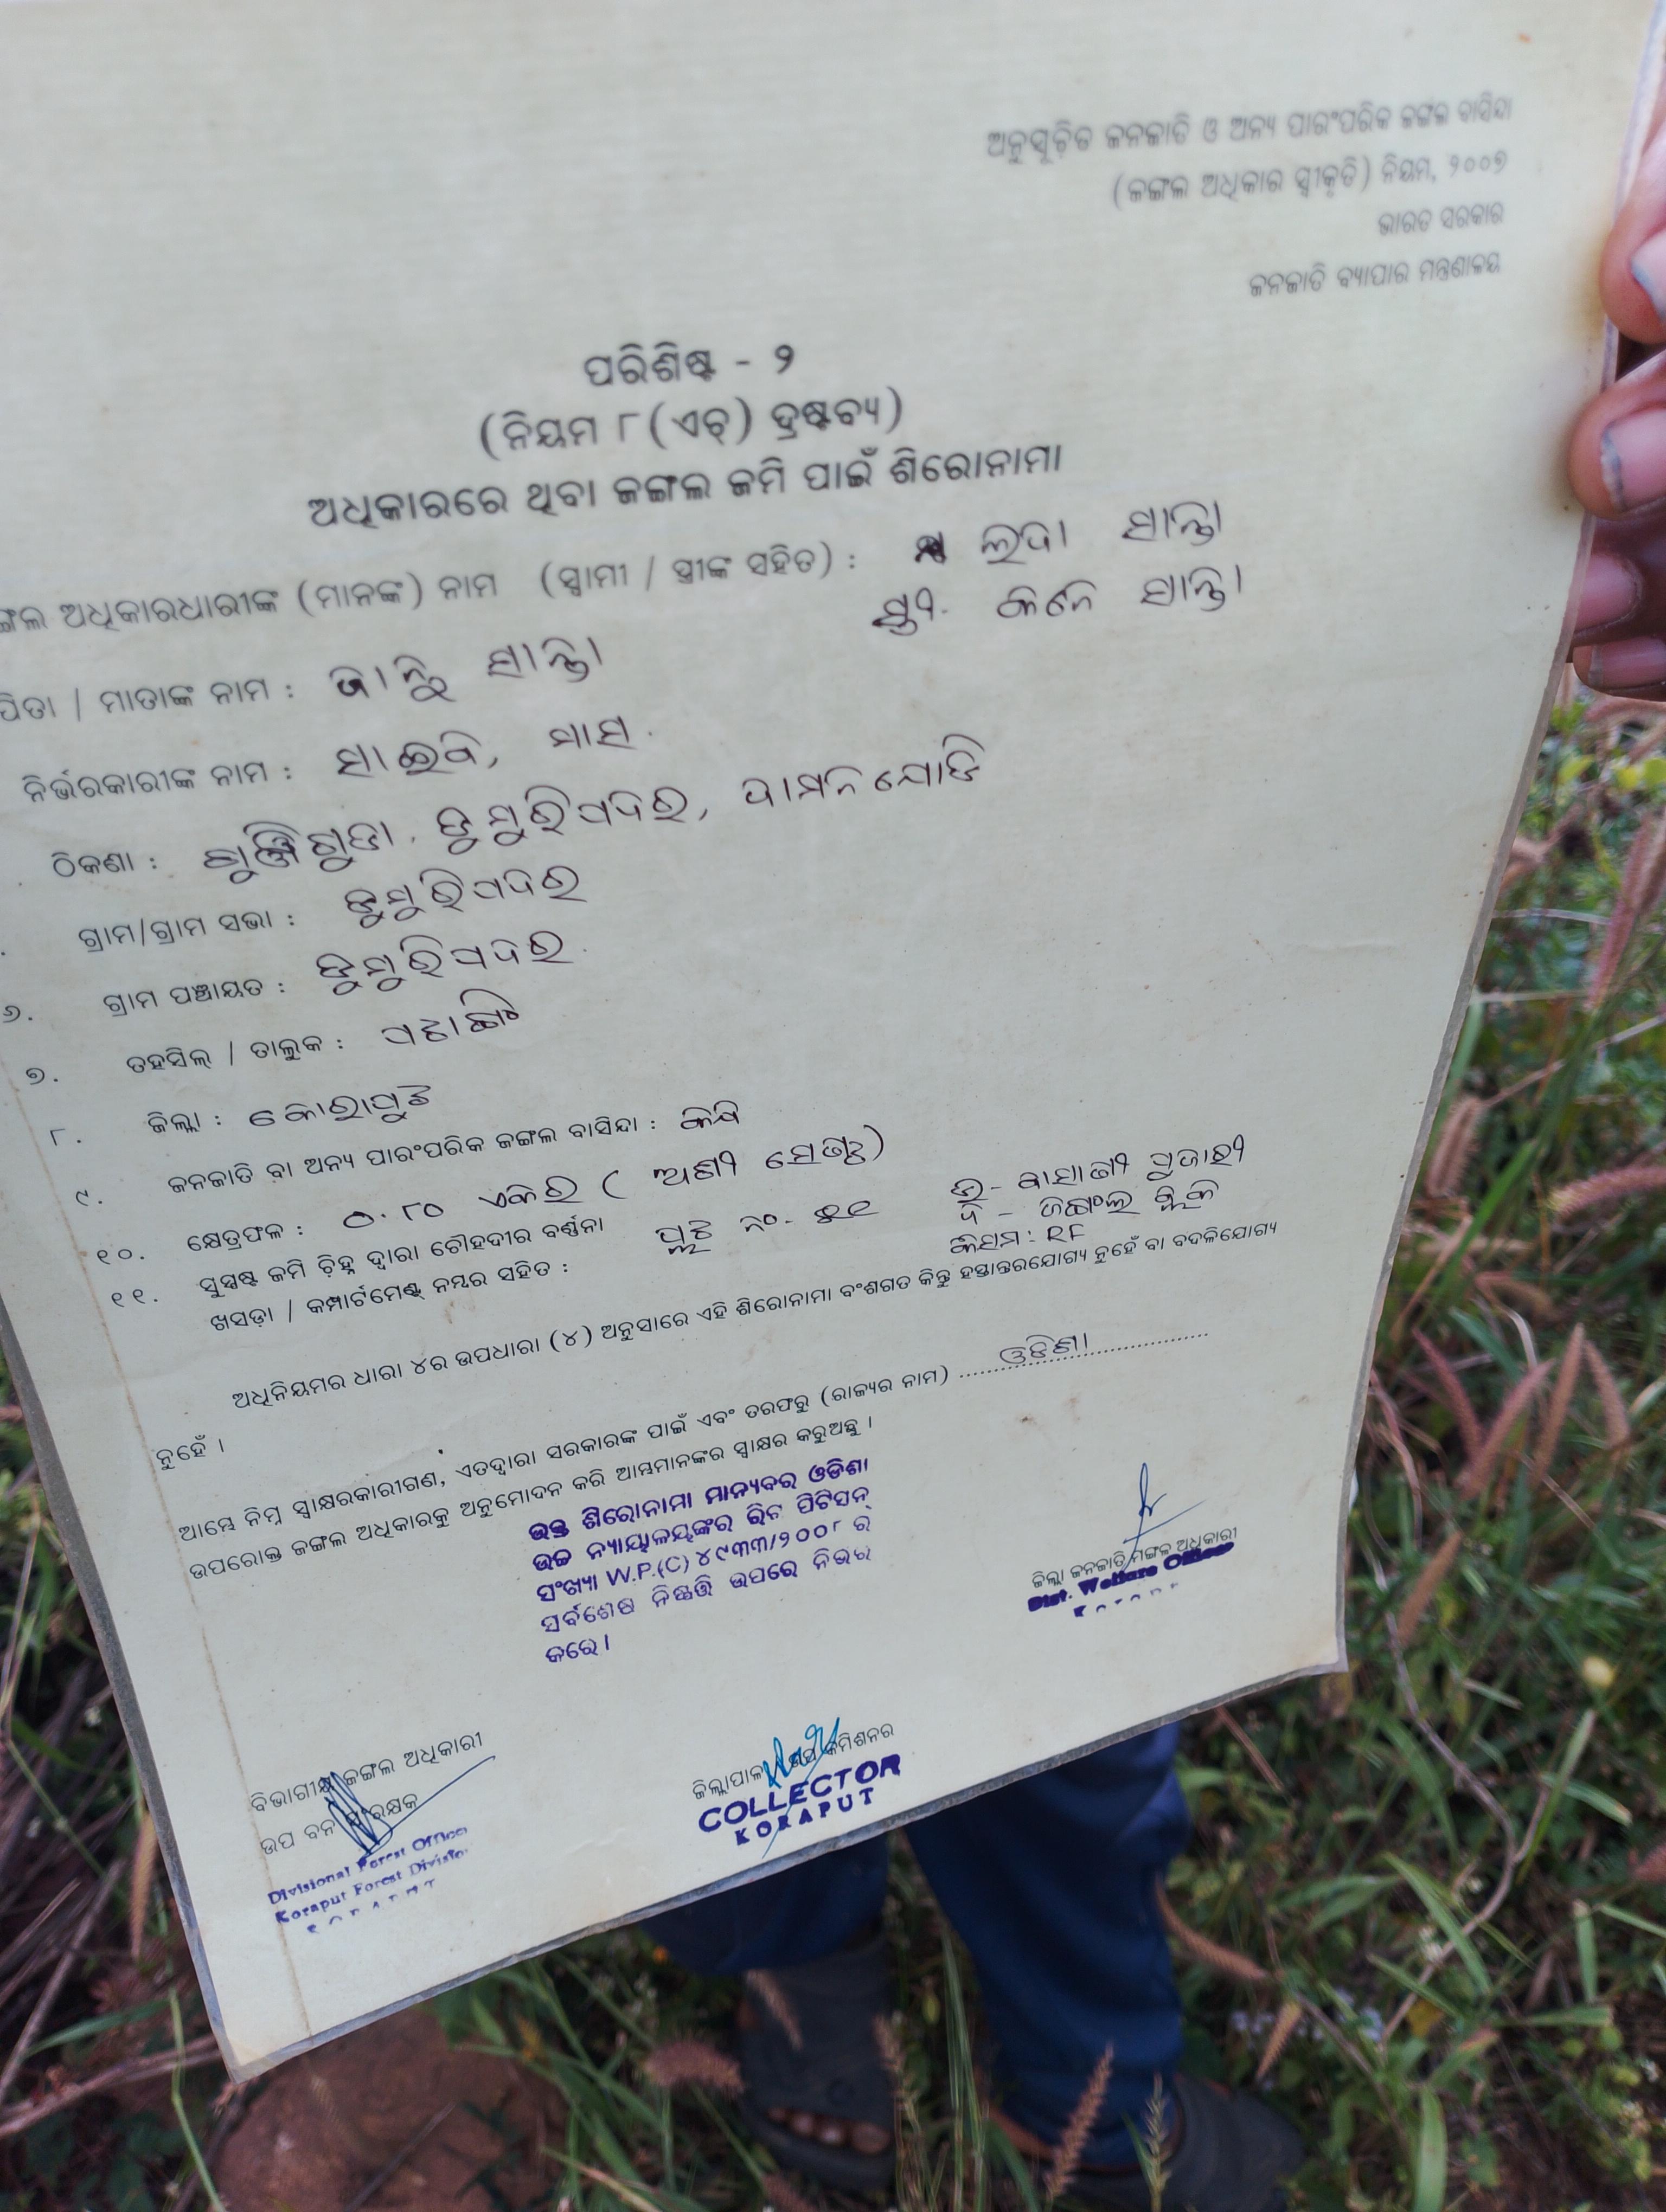 ଅନୁସୂଚିତ ଜନଜାତି ଓ ଅନ୍ୟ ପାରଂପରିକ ଜଙ୍ଗଲ ବାସିନ୍ଦା
(ଜଙ୍ଗଲ ଅଧିକାର ସ୍ୱୀକୃତି) ନିୟମ, ୨୦୦୭
ଭାରତ ସରକାର
ଜନଜାତି ବ୍ୟାପାର ମନ୍ତ୍ରଣାଳୟ
ପରିଶିଷ୍ଟ - ୨
(ନିୟମ ୮(ଏଚ୍) ଦ୍ରଷ୍ଟବ୍ୟ)
ଅଧିକାରରେ ଥିବା ଜଙ୍ଗଲ ଜମି ପାଇଁ ଶିରୋନାମା
ଙ୍ଗଲ ଅଧିକାରଧାରୀଙ୍କ (ମାନଙ୍କ) ନାମ (ସ୍ୱାମୀ / ସ୍ତ୍ରୀଙ୍କ ସହିତ) : ଲଦା ସାନ୍ତା
ସାନ୍ତା
ପିତା / ମାତାଙ୍କ ନାମ : ସାନ୍ତା
ନିର୍ଭରକାରୀଙ୍କ ନାମ :
ଠିକଣା : ଡୁମୁରିପଦର, ଦାମନଯୋଡି
ଗ୍ରାମ/ଗ୍ରାମ ସଭା : ଡୁମୁରିପଦର
୬. ଗ୍ରାମ ପଞ୍ଚାୟତ : ଡୁମୁରିପଦର
୭. ତହସିଲ୍ / ତାଲୁକ : ପଟାଙ୍ଗି
୮. ଜିଲ୍ଲା : କୋରାପୁଟ
୯. ଜନଜାତି ବା ଅନ୍ୟ ପାରଂପରିକ ଜଙ୍ଗଲ ବାସିନ୍ଦା : କନ୍ଧ
୧୦. କ୍ଷେତ୍ରଫଳ : ୦.୮୦ ଏକର (ଅଶୀ ସେଣ୍ଟ)
୧୧. ସୁସ୍ପଷ୍ଟ ଜମି ଚିହ୍ନ ଦ୍ୱାରା ଚୌହଦୀର ବର୍ଣ୍ଣନା ପ୍ଲଟ ନଂ- ଉ- ପୂଜାରୀ
ଖସଡ଼ା / କମ୍ପାର୍ଟମେଣ୍ଟ ନମ୍ବର ସହିତ : ଦ -
କିସମ : RF
ଅଧିନିୟମର ଧାରା ୪ର ଉପଧାରା (୪) ଅନୁସାରେ ଏହି ଶିରୋନାମା ବଂଶଗତ କିନ୍ତୁ ହସ୍ତାନ୍ତରଯୋଗ୍ୟ ନୁହେଁ ବା ବଦଳିଯୋଗ୍ୟ
ନୁହେଁ ।
ଆମ୍ଭେ ନିମ୍ନ ସ୍ୱାକ୍ଷରକାରୀଗଣ, ଏତଦ୍ୱାରା ସରକାରଙ୍କ ପାଇଁ ଏବଂ ତରଫରୁ (ରାଜ୍ୟର ନାମ) ଓଡିଶା
ଉପରୋକ୍ତ ଜଙ୍ଗଲ ଅଧିକାରକୁ ଅନୁମୋଦନ କରି ଆମ୍ଭମାନଙ୍କର ସ୍ୱାକ୍ଷର କରୁଅଛୁ ।
ଉକ୍ତ ଶିରୋନାମା ମାନ୍ୟବର ଓଡିଶା
ଉଚ୍ଚ ନ୍ୟାୟାଳୟଙ୍କର ରିଟ ପିଟିସନ୍
ସଂଖ୍ୟା W.P.(C) ୪୯୩୩/୨୦୦୮ ର
ସର୍ବଶେଷ ନିଷ୍ପତ୍ତି ଉପରେ ନିର୍ଭର
କରେ ।
ଜିଲ୍ଲା ଜନଜାତି ମଙ୍ଗଳ ଅଧିକାରୀ
Dist. Welfare Officer
ବିଭାଗୀୟ ଜଙ୍ଗଲ ଅଧିକାରୀ
ଉପ ବନ ସଂରକ୍ଷକ
Divisional Forest Officer
Koraput Forest Division
ଜିଲ୍ଲାପାଳ ଉପ କମିଶନର
COLLECTOR
KORAPUT